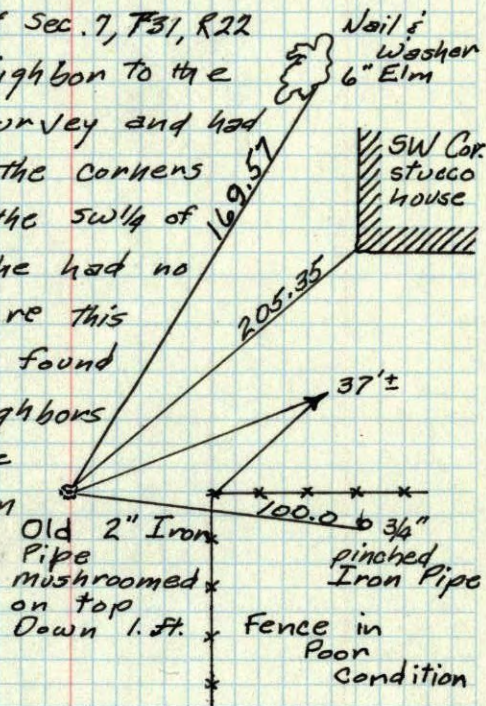 f Sec. 7, T31, R22
ighbor to the
urvey and had
the corners
the SW1/4 of
he had no
re this
found
ghbors
e
n
Nail &
Washer
6" Elm
SW Cor.
stucco
house
169.57
205.35
37'±
100.0
3/4"
pinched
Iron Pipe
Old 2" Iron
Pipe
mushroomed
on top
Down 1. ft.
Fence in
Poor
Condition